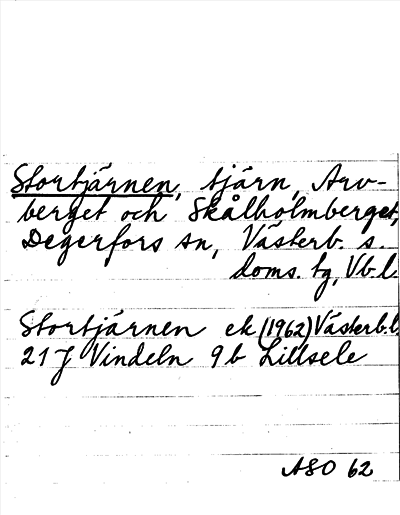 Stortjärnen, tjärn, Arv-
berget och Skålholmberget,
Degerfors sn, Västerb. s.
doms. tg, Vb. l
Stortjärnen ek (1962) Västerb. l
21 J Vindeln 9b Lillsele
ASO 62